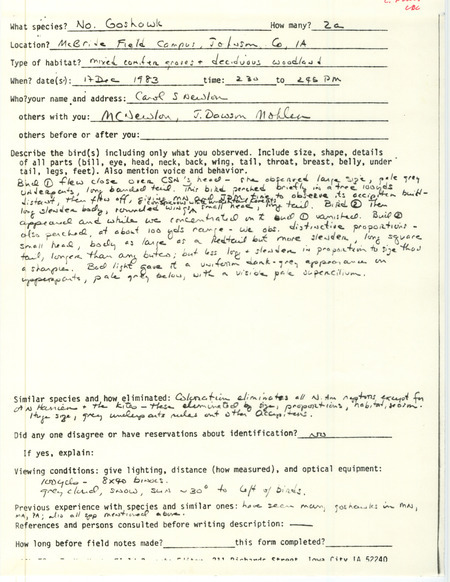 What species? No. Goshawk How many? 2a
Location? McBride Field Campus, Johnson Co, IA
Type of habitat? mixed conifer groves + deciduous woodland
When? date(s): 17 Dec 1983 time: 230 to 245 PM
Who? your name and address: Carol S Newlon
others with you: MC Newlon, J. Dawson Mohler
others before or after you:
Describe the bird(s) including only what you observed. Include size, shape, details
of all parts (bill, eye, head, neck, back, wing, tail, throat, breast, belly, under
tail, legs, feet). Also mention voice and behavior.
Bird ① flew close over CSN's head - she observed large size, pale grey
underparts, long banded tail. This bird perched briefly in a tree 100 yds
distant, then flew off, giving MN and JDM time to observe its accipiter build-
long slender body, rounded wings, small head, long tail. Bird ② then
appeared and while we concentrated on it bird ① vanished. Bird ②
also perched, at about 100 yds range - we obs. distinctive proportions -
small head, body as large as a Redtail but more slender, long square
tail, longer than any buteo; but less long + slender in proportion to size than
a sharpie. Bad light gave it a uniform dark-grey appearance on
upperparts, pale grey below, with a visible pale supercilium.
Similar species and how eliminated: Coloration eliminates all N. Am raptors except for
♂ N Harrier + the kites - these eliminated by size, proportions, habitat, season.
Huge size, grey underparts rules out other accipiters.
Did any one disagree or have reservations about identification? no
If yes, explain:
Viewing conditions: give lighting, distance (how measured), and optical equipment:
100 yds - 8x40 binocs.
grey cloud, snow, sun ~30° to left of birds.
Previous experience with species and similar ones: have seen many goshawks in MN,
PA; also all spp mentioned above.
References and persons consulted before writing description: —
How long before field notes made? this form completed?
Street, Iowa City IA 52240